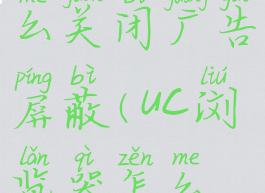 me guān bì guǎng gào
么关闭广告
píng bì liú
屏蔽(UC浏
lǎn qì zěn me
览器怎么